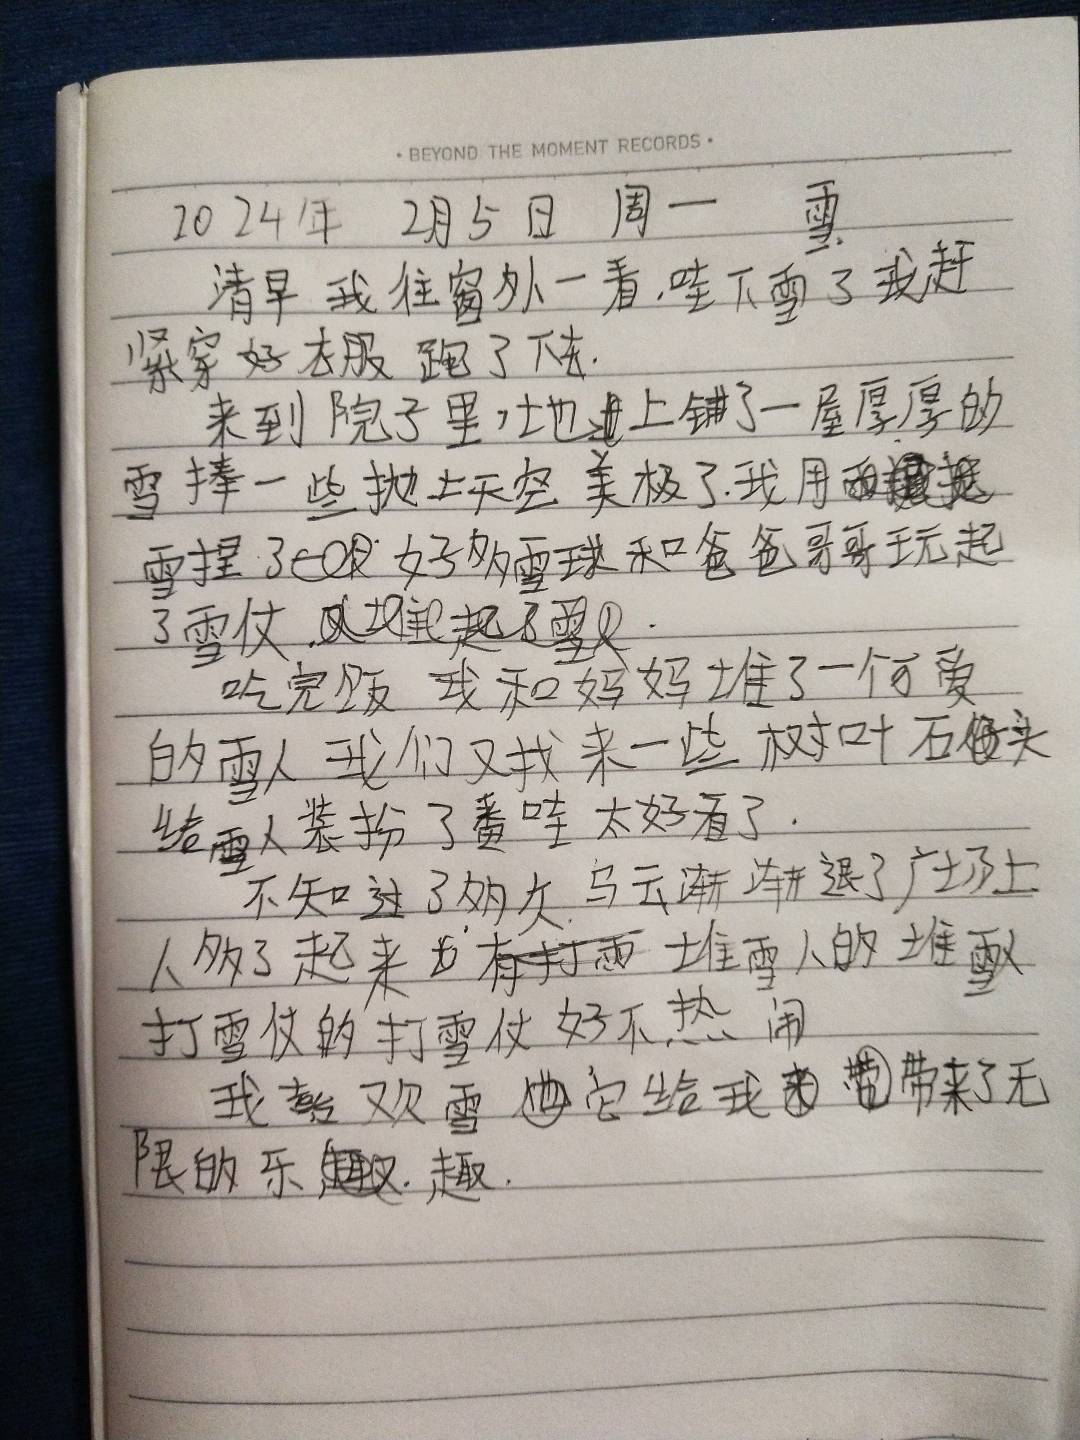 • BEYOND THE MOMENT RECORDS •
2024年 2月5日 周一 雪
清早我往窗外一看.哇下雪了我赶
紧穿好衣服跑了下去.
来到院子里,土地上铺了一层厚厚的
雪捧一些抛上天空美极了.我用
雪捏了好多雪球和爸爸哥哥玩起
了雪仗.又堆起了雪人.
吃完饭 我和妈妈堆了一个可爱
的雪人我们又找来一些树叶石头
给雪人装扮了番哇太好看了.
不知过了多久.乌云渐渐退了广场上
人多了起来 堆雪人的堆雪人
打雪仗的打雪仗好不热闹
我喜欢雪 它给我带来了无
限的乐趣.